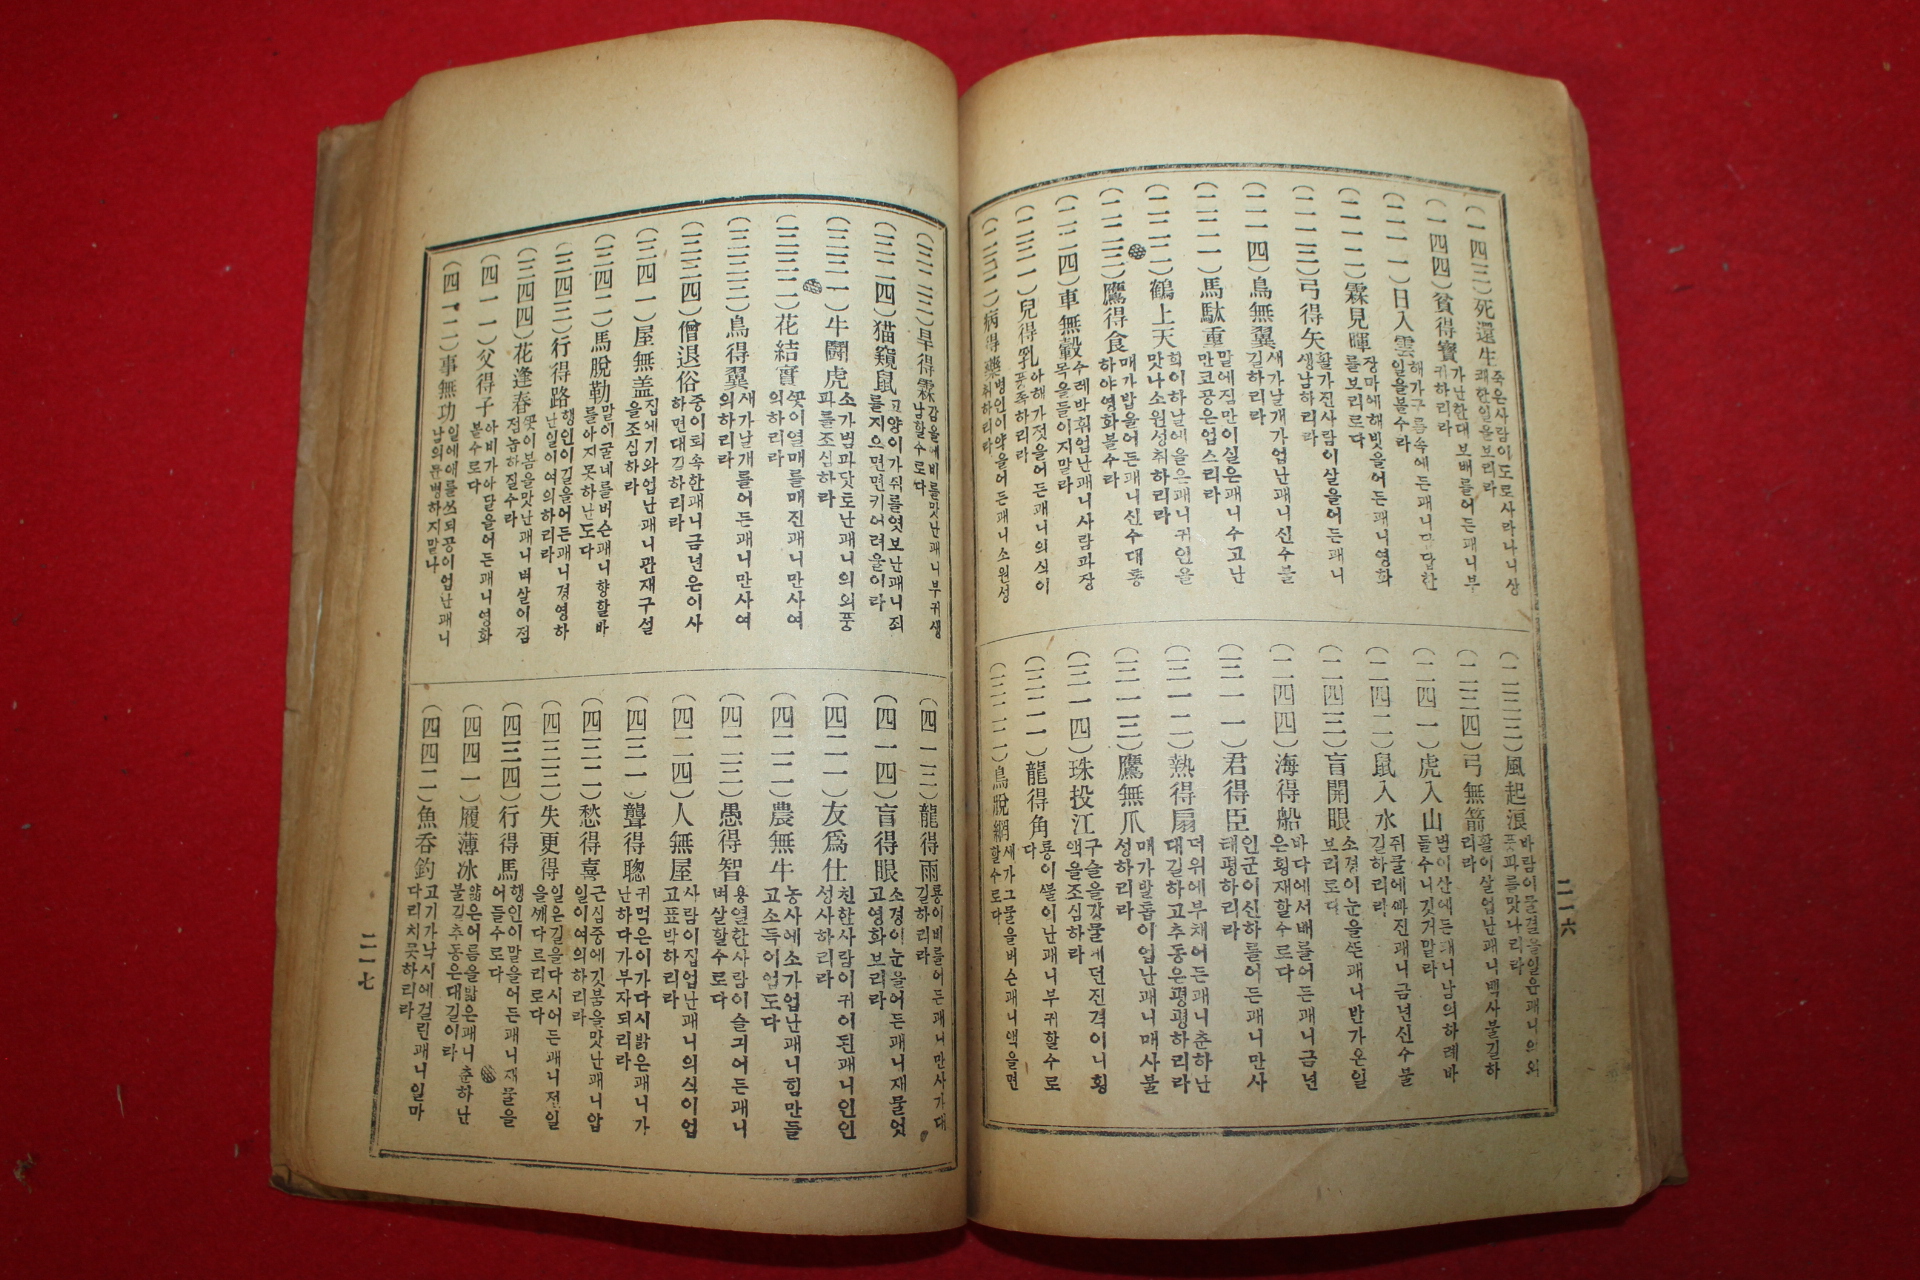 (一四三)死還生 죽은사람이도로사라나니상
쾌한일을보리라
(一四四)貧得寶 가난한대보배를어든괘니부
귀하리라
(二一一)日入雲 해가구름속에든괘니다답한
일을볼수라
(二一二)霖見暉 장마에해빗을어든괘니영화
를보리로다
(二一三)弓得矢 활가진사람이살을어든괘니
생남하리라
(二一四)鳥無翼 새가날개가업난괘니신수불
길하리라
(二二一)馬駄重 말에짐만이실은괘니수고난
만코공은업스리라
(二二二)鶴上天 학이하날에올은괘니귀인을
맛나소원성취하리라
(二二三)鷹得食 매가밥을어든괘니신수대통
하야영화볼수라
(二二四)車無轂 수레박휘업난괘니사람과장
목을들이지말라
(二三一)兒得乳 아해가젓을어든괘니의식이
풍족하리라
(二三二)病得藥 병인이약을어든괘니소원성
취하리라
(二三三)風起浪 바람이물결을일운괘니의외
풍파를맛나리라
(二三四)弓無箭 활이살업난괘니백사불길하
리라
(二四一)虎入山 범이산에든괘니남의하례바
들수니깃거말라
(二四二)鼠入水 쥐물에빠진괘니금년신수불
길하리라
(二四三)盲開眼 소경이눈을뜬괘니반가온일
브리로다
(二四四)海得船 바다에서배를어든괘니금년
은횡재할수르다
(三一一)君得臣 인군이신하를어든괘니만사
태평하리라
(三一二)熱得扇 더위에부채어든괘니춘하난
대길하고추동은평평하리라
(三一三)鷹無爪 매가발톱이업난괘니매사불
성하리라
(三一四)珠投江 구슬을강물에던진격이니횡
액을조심하라
(三二一)龍得角 룡이뿔이난괘니부귀할수로
다
(三二二)鳥脫網 새가그물을버슨괘니액을면
할수로다
二一六
(三二三)旱得霖 감을에비를맛난괘니부귀생
남할수로다
(三二四)猫窺鼠 고양이가쥐를엿보난괘니죄
를지으면면키어려울이라
(三三一)牛鬪虎 소가범과닷토난괘니의외풍
파를조심하라
(三三二)花結實 꼿이열매를매진괘니만사여
의하리라
(三三三)鳥得翼 새가날개를어든괘니만사여
의하리라
(三三四)僧退俗 중이퇴속한괘니금년은이사
하면대길하리라
(三四一)屋無盖 집에기와업난괘니관재구설
을조심하라
(三四二)馬脫勒 말이굴네를버슨괘니향할바
를아지못하난도다
(三四三)行得路 행인이길을어든괘니경영하
난일이여의하리라
(三四四)花逢春 꼿이봄을맛난괘니벼살이점
점놉하질수라
(四一一)父得子 아비가아달을어든괘니영화
볼수로다
(四一二)事無功 일에애를쓰되공이업난괘니
남의문병하지말나
(四一三)龍得雨 룡이비를어든괘니만사가대
길하리라
(四一四)盲得眼 소경이눈을어든괘니재물엇
고영화브리라
(四二一)友爲仕 친한사람이귀이된괘니인인
성사하리라
(四二二)農無牛 농사에소가업난괘니힘만들
고소득이업도다
(四二三)愚得智 용열한사람이슬긔어든괘니
벼살할수로다
(四二四)人無屋 사람이집업난괘니의식이업
고표박하리라
(四三一)聾得聰 귀먹은이가다시밝은괘니가
난하다가부자되리라
(四三二)愁得喜 근심중에깃붐을맛난괘니압
일이여의하리라
(四三三)失更得 일은길을다시어든괘니전일
을깨다르리로다
(四三四)行得馬 행인이말을어든괘니재물을
어들수로다
(四四一)履薄冰 얇은어름을밟은괘니춘하난
불길추동은대길이라
(四四二)魚呑釣 고기가낙시에걸린괘니일마
다리치못하리라
二一七